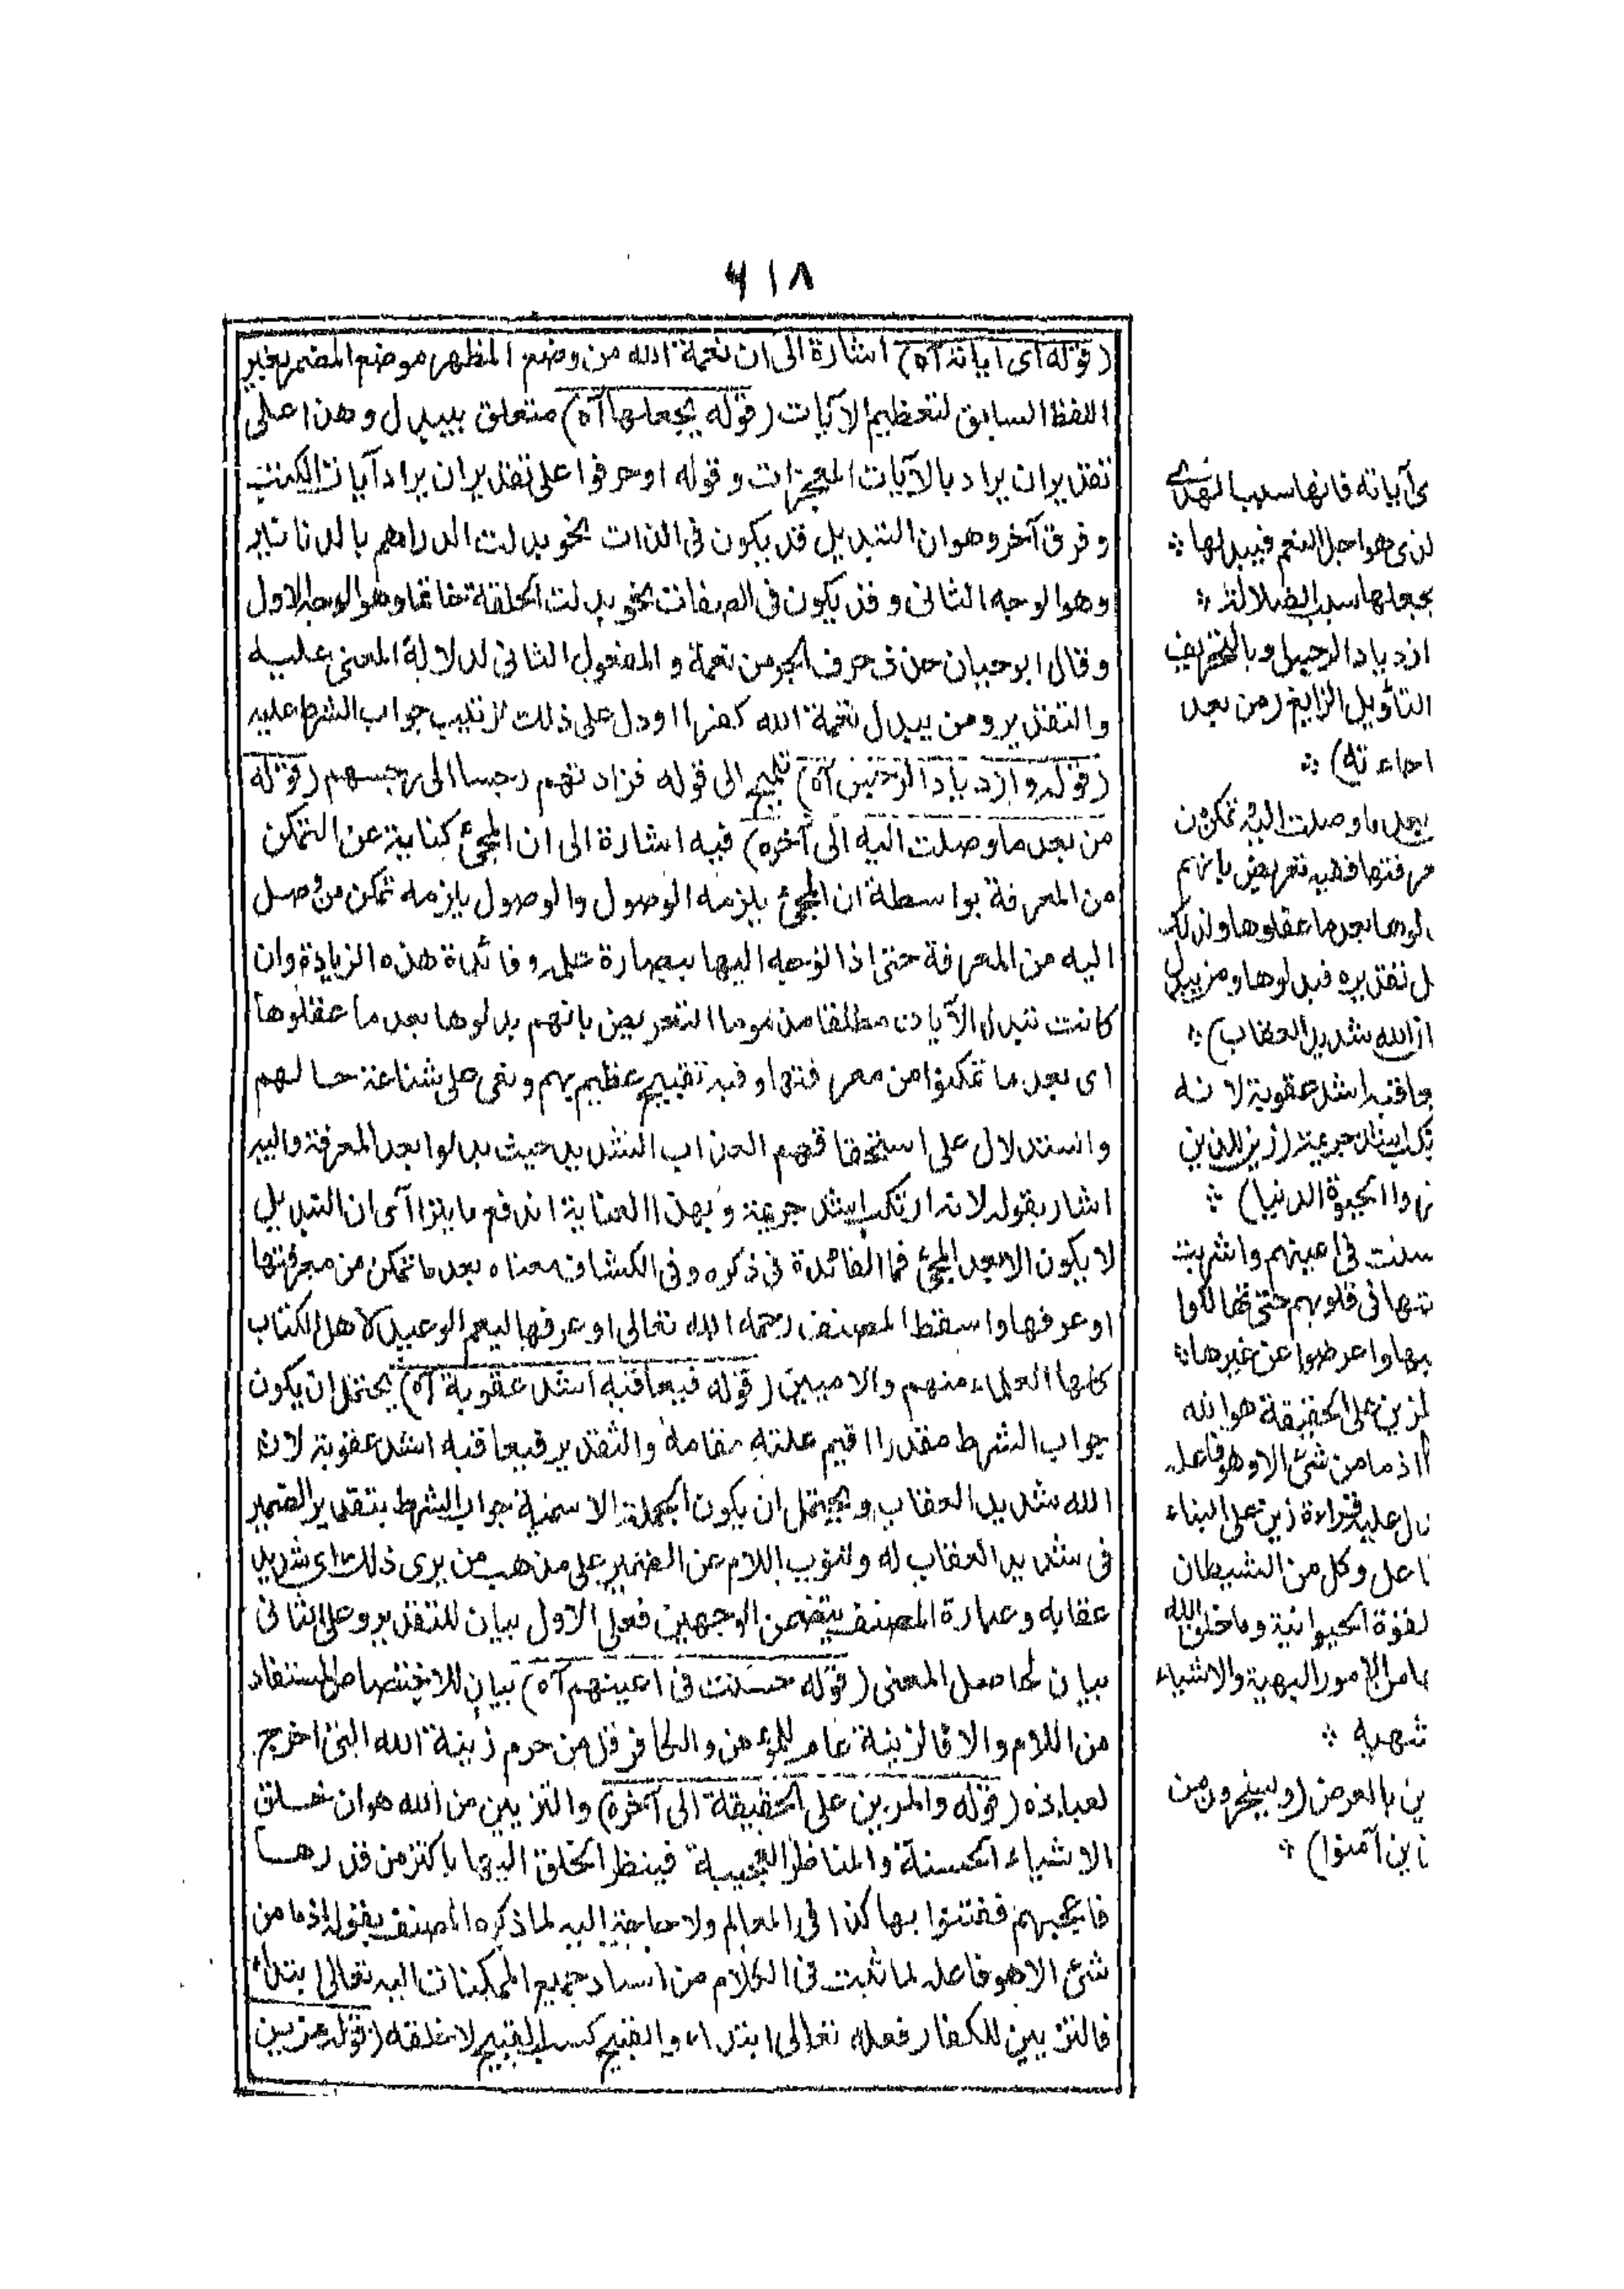 ٦١٨
(قوله اى اياته آه) اشارة الى ان نعمة الله من وضع المظهر موضع المضمر بغير
اللفظ السابق لتعظيم الآيات (قوله بجعلها آه) متعلق بيبدل وهذا على
تقدير ان يراد بالآيات المعجزات وقوله او حرفوا على تقدير ان يراد آيات الكتب
وفرق آخر وهو ان التبديل قد يكون فى الذات نحو بدلت الدراهم بالدنانير
وهو الوجه الثانى وقد يكون فى الصفات نحو بدلت الحلقة خاتما وهو الوجه الاول
وقال ابو حيان حذف حرف الجر من نعمة والمفعول الثانى لدلالة المعنى عليه
والتقدير ومن يبدل نعمة الله كفرا ودل على ذلك ترتيب جواب الشرط عليه
(قوله وازدياد الرجس آه) تلميح الى قوله فزادتهم رجسا الى رجسهم (قوله
من بعد ما وصلت اليه الى آخره) فيه اشارة الى ان المجئ كناية عن التمكن
من المعرفة بواسطة ان المجئ يلزمه الوصول والوصول يلزمه تمكن من وصل
اليه من المعرفة حتى اذا توجه اليها وفائدة هذه الزيادة وان
كانت تبدل الآيات مطلقا مذموما التعريض بانهم بدلوها بعد ما عقلوها
اى بعد ما تمكنوا من معرفتها وفيه تقبيح عظيم بهم ونعى على شناعة حالهم
واستدلال على استحقاقهم العذاب الشديد حيث بدلوا بعد المعرفة واليه
اشار بقوله لانه ارتكب اشد جريمة وبهذا العناية اندفع ما يتراآى ان التبديل
لا يكون الا بعد المجئ فما الفائدة فى ذكره وفى الكشاف معناه بعد ما تمكن من معرفتها
او عرفها واسقط المصنف رحمه الله تعالى او عرفها ليعم الوعيد لاهل الكتاب
كلها العلماء منهم والاميين (قوله فيعاقبه اشد عقوبة آه) يحتمل ان يكون
جواب الشرط مقدرا اقيم علته مقامه والتقدير فيعاقبه اشد عقوبة لان
الله شديد العقاب ويحتمل ان يكون الجملة الاسمية جواب الشرط بتقدير الضمير
فى شديد العقاب له ولنوب اللام عن الضمير على مذهب من يرى ذلك اى شديد
عقابه وعبارة المصنف يتضمن الوجهين فعلى الاول بيان للتقدير وعلى الثانى
بيان لحاصل المعنى (قوله حسنت فى اعينهم آه) بيان للاختصاص المستفاد
من اللام والا فالزينة عام للمؤمن والكافر قل من حرم زينة الله التى اخرج
لعباده (قوله والمزين على الحقيقة الى آخره) والتزيين من الله هو ان خلق
الاشياء الحسنة والمناظر العجيبة فينظر الخلق اليها باكثر من قدرها
فاعجبهم ففتنوا بها كذا فى المعالم ولا حاجة اليه لما ذكره المصنف بقوله اذ ما من
شئ الا هو فاعله لما ثبت فى الكلام من اسناد جميع الممكنات اليه تعالى ابتداء
فالتزيين للكفار فعله تعالى ابتداء والقبيح كسب القبيح لا خلقه (قوله من بين
ى آياته فانها سبب الهدى
لذى هو اجل النعم فيبدلها ۞
بجعلها سبب الضلالة ۞
ازدياد الرجس وبالتحريف
التأويل الزايغ (من بعد
ما جاءته) ۞
بعد ما وصلت اليه تمكن من
معرفتها ففيه تعريض بانهم
لوها بعد ما عقلوها ولذلك
ل تقديره فبدلوها ومن يبدل
ان الله شديد العقاب) ۞
عاقبه اشد عقوبة لانه
تكب اشد جريمة (زين للذين
فروا الحيوة الدنيا) ۞
سنت فى اعينهم واشربت
بتها فى قلوبهم حتى تهالكوا
يها واعرضوا عن غيرها ۞
لمزين على الحقيقة هو الله
اذ ما من شئ الا وهو فاعله
دل عليه قراءة زين على البناء
اعل وكل من الشيطان
لقوة الحيوانية وما خلق الله
ها من الامور البهية والاشياء
شهية ۞
ين بالعرض (ويسخرون من
ذين آمنوا) ۞